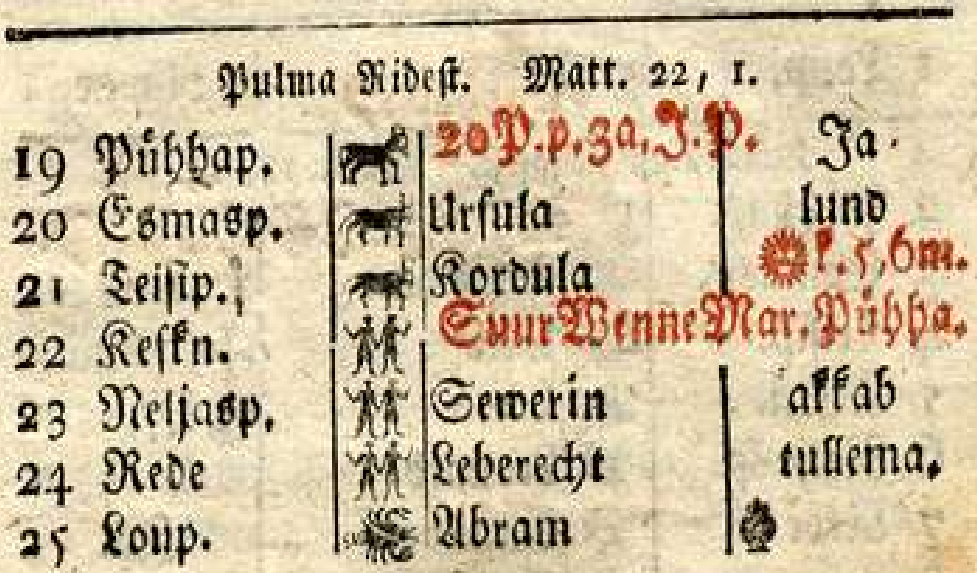 Pulma Ridest. Matt. 22, 1.
19 Pühhap. 20 P. p. za. J. P. Ja
20 Esmasp. Ursula lund
21 Teisip. Kordula k. 5, 6 m.
22 Keskn. Suur Wenne Mar. Pühha.
23 Neljasp. Sewerin akkab
24 Rede Leberecht tullema.
25 Loup. Abram